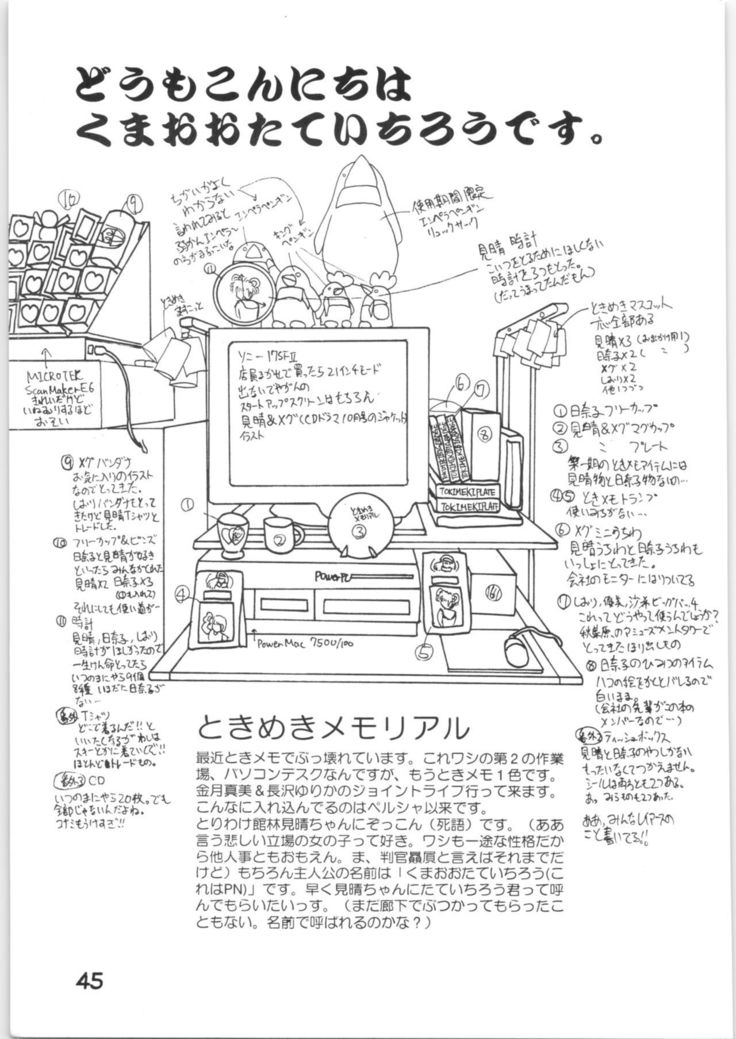 どうもこんにちは
くまおおたていちろうです。
ちがいがよく
わからない
言われてみると
エンペラペンギン
キング
ペンギン
使用期間限定
エンペラペンギン
リュックサック
見晴 時計
こいつをとるためにほしくない
時計を3つもとった。
(だってうまってたんだもん)
⑩
⑨
⑪
ときめき
MICROTEK
ScanMakerE6
きれいだけど
いねむりするほど
おそい
ソニー 17SFⅡ
店員まかせで買ったら21インチモード
出ないでやんの
スタートアップスクリーンはもちろん
見晴&メグ(CDドラマ10月号のジャケット)
イラスト
ときめきマスコット
六つ全部ある
見晴×3(おでかけ用1)
日奈子×2( 〃 )
メグ×2
しおり×2
他1つづつ
⑥
⑦
⑧
①日奈子フリーカップ
②見晴&メグマグカップ
③ 〃 プレート
第一期のときメモアイテムには
見晴物と日奈子物ないの…
④⑤ ときメモトランプ
使いみちがない…
⑥メグミニうちわ
見晴うちわと日奈子うちわも
いっしょにとってきた。
会社のモニターにはりついてる
⑦しおり,優美,沙希ビッグバー4
これってどうやって使うんでしょうか?
秋葉原のアミューズメントタワーで
とってきたほり出しもの
⑧日奈子のひみつのアイテム
八つの絵をかくとバレるので
白いまま。
(会社の先輩がこの本の
メンバーなので…)
番外2 ティッシュボックス
見晴と日奈子のやつしかない
もったいなくてつかえません。
シールは両方とも2つある。
ああ,みんなレイアースの
こと書いてる!!
⑨ メグバンダナ
お気に入りのイラスト
なのでとってきた。
しおりバンダナもとって
きたけど見晴Tシャツと
トレードした。
⑩ フリーカップ&ビンズ
日奈子と見晴が好き
といったらみんながくれた
見晴×2 日奈子×3
それにしても使い道が…
⑪ 時計
見晴,日奈子,しおり
時計がほしかったので
一生けん命とってたら
いつのまにやら9個
8種 いまだに日奈子が
ない…
番外1 Tシャツ
どこで着るんだ!!と
いいたくなるがわしは
スキーとかに着ていくで!!
ほとんどトレードもの。
番外3 CD
いつのまにやら20枚。でも
全部じゃないんだよね。
コナミもうけすぎ!!
①
②
ときめき
メモリアル
③
TOKIMEKIPLATE
TOKIMEKIPLATE
④
PowerPC
⑤
PowerMac 7500/100
ときめきメモリアル
最近ときメモでぶっ壊れています。これワシの第2の作業
場、パソコンデスクなんですが、もうときメモ1色です。
金月真美&長沢ゆりかのジョイントライブ行って来ます。
こんなに入れ込んでるのはペルシャ以来です。
とりわけ館林見晴ちゃんにぞっこん(死語)です。(ああ
言う悲しい立場の女の子って好き。ワシも一途な性格だか
ら他人事ともおもえん。ま、判官贔屓と言えばそれまでだ
けど)もちろん主人公の名前は「くまおおたていちろう(こ
れはPN)」です。早く見晴ちゃんにたていちろう君って呼
んでもらいたいっす。(まだ廊下でぶつかってもらったこ
ともない。名前で呼ばれるのかな?)
45